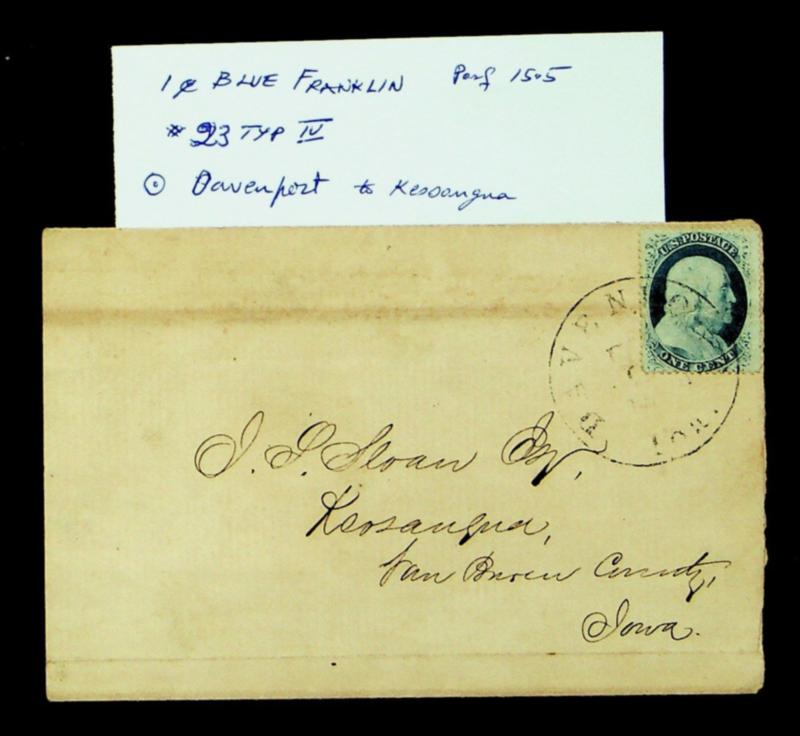 1¢ BLUE FRANKLIN Perf 15.5
* 23 TYP IV
⊙ Davenport to Keosangua
U.S. POSTAGE
ONE CENT
DAVEN
IOW
J. S. Sloan Esq,
Keosangua,
Van Buren County,
Iowa.